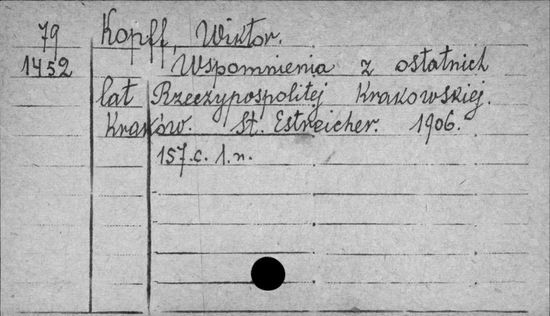 79 Kopff, Wiktor.
1452 Wspomnienia z ostatnich
lat Rzeczypospolitej Krakowskiej.
Kraków. St. Estreicher. 1906.
157.c. 1.n.